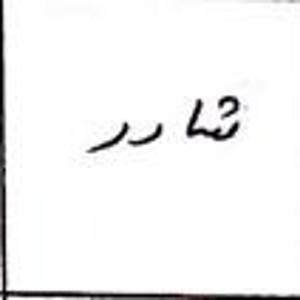 شادر